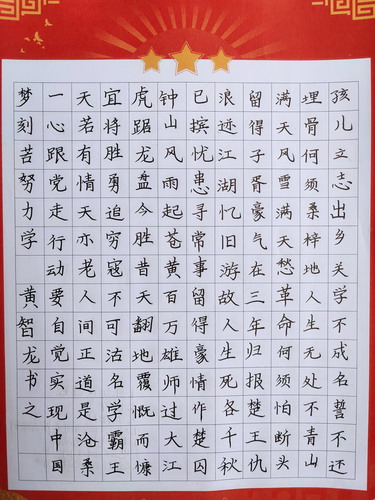 孩儿立志出乡关学不成名誓不还
埋骨何须桑梓地人生无处不青山
满天风雪满天愁革命何须怕断头
留得子胥豪气在三年归报楚王仇
浪迹江湖忆旧游故人生死各千秋
已摈忧患寻常事留得豪情作楚囚
钟山风雨起苍黄百万雄师过大江
虎踞龙盘今胜昔天翻地覆慨而慷
宜将胜勇追穷寇不可沽名学霸王
天若有情天亦老人间正道是沧桑
一心跟党走行动要自觉实现中国
梦刻苦努力学 黄智龙书之